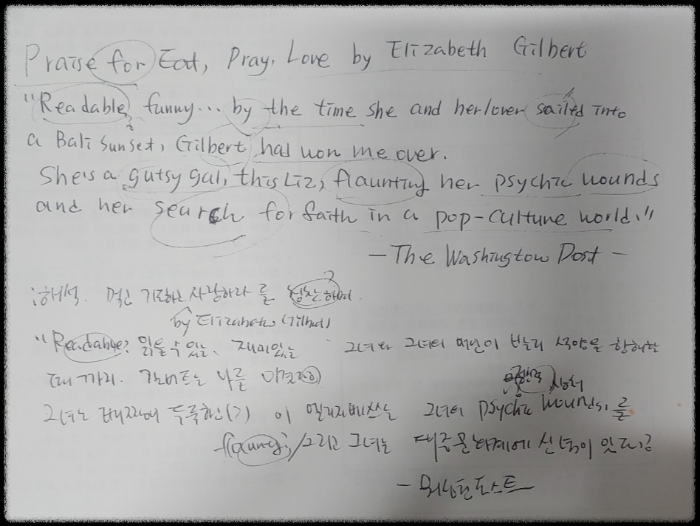 Praise for Eat, Pray, Love by Elizabeth Gilbert
"Readable, funny... by the time she and her lover sailed into
a Bali sunset, Gilbert had won me over.
She's a gutsy gal, this Liz, flaunting her psychic wounds
and her search for faith in a pop-culture world."
- The Washington Post -
해석. 먹고 기도하고 사랑하라 를 칭찬하며
by Elizabeth Gilbert
"Readable? 읽을 수 있는, 재미있는 그녀와 그녀의 애인이 발리 석양을 항해할
때 까지. 길버트는 나를 이겼다
정신적 상처
그녀는 배짱에 두둑한(?) 이 엘리자베스는 그녀의 psychic wounds를
flaunt, 그리고 그녀는 대중문화계에 신념이 있다고
- 워싱턴포스트